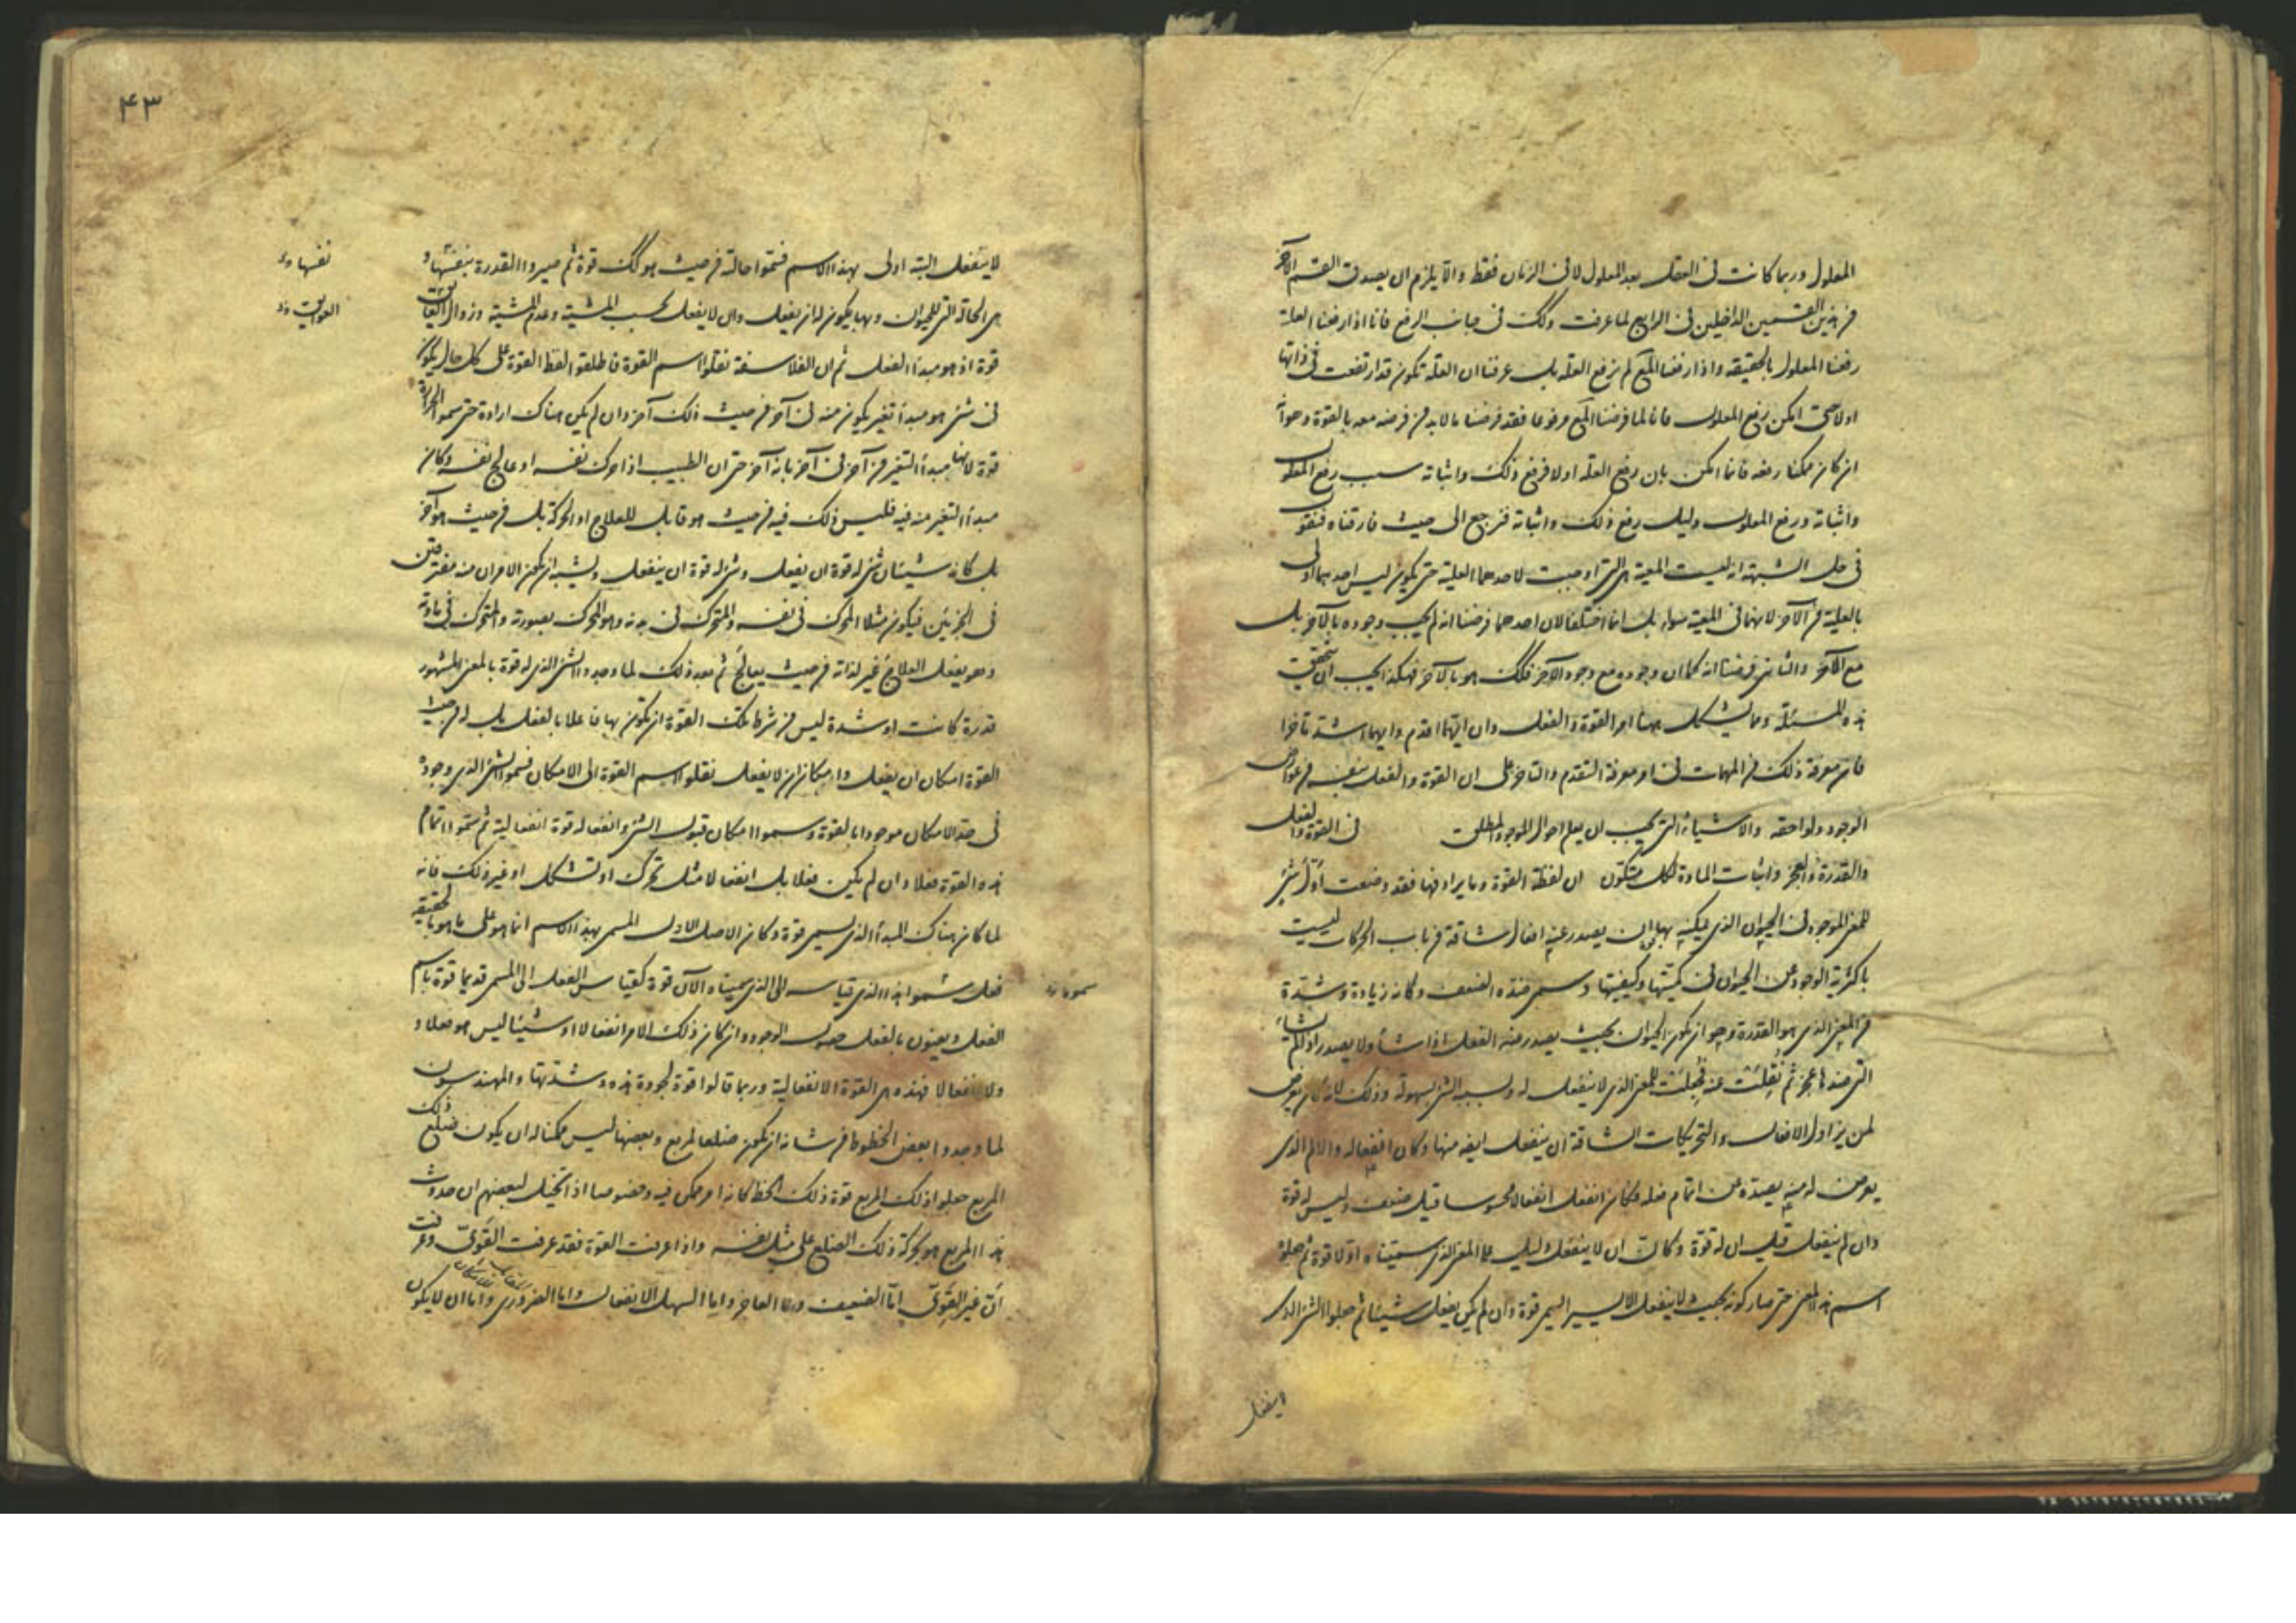 المعلول وربما كانت فى العقل بعد المعلول لا فى الزمان فقط والا يلزم ان يصدق القسم الآخر
من هذين القسمين الداخلين فى الرابع لما عرفت وكذلك فى جانب الرفع فانا اذا رفعنا العلة
رفعنا المعلول بالحقيقة واذا رفعنا المع لم نرفع العلة بل عرفنا ان العلة تكون قد ارتفعت فى ذاتها
اولا حتى امكن رفع المعلول فانا لما فرضنا المع مرفوعا فقد فرضنا ما لابد من فرضه معه بالقوة وهو انه
ان كان ممكنا رفعه فانما امكن بان رفع العلة اولا فرفع ذلك واثباته سبب رفع المعلول
واثباته ورفع المعلول دليل رفع ذلك واثباته فنرجع الى حيث فارقناه فنقول
فى حل الشبهة انه ليست المعية هى التى اوجبت لاحدهما العلية حتى يكون ليس احدهما اولى
بالعلية من الآخر لانهما فى المعية سواء بل انما اختلفا لان احدهما فرضنا انه لم يجب وجوده بالآخر بل
مع الآخر والثانى فرضنا انه كما ان وجوده مع وجود الآخر فكك هو بالآخر فهكذا يجب ان تتحقق
هذه المسئلة ومما يشكل ههنا امر القوة والفعل وان ايهما اقدم وايهما اشد تاخرا
فان معرفة ذلك من المهمات فى امر معرفة التقدم والتاخر على ان القوة والفعل نفسه من عوارض
الوجود ولواحقه والاشياء التى يجب ان يعلم احوال الموجود المطلق فى القوة والفعل
والقدرة والعجز واثبات المادة لكل متكون ان لفظة القوة وما يرادفها فقد وضعت اول شئ
للمعنى الموجود فى الحيوان الذى يمكنه بها ان يصدر عنه افعال شاقة من باب الحركات ليست
باكثرية الوجود عن الحيوان فى كميتها وكيفيتها وسمى ضده الضعف وكانه زيادة وشدة
من المعنى الذى هو القدرة وهو ان يكون الحيوان بحيث يصدر منه الفعل اذا شاء ولا يصدر اذا لم يشاء
التى ضدها عجز ثم نقلت عنه فجعلت للمعنى الذى لا ينفعل له وبسببه الشئ بسهولة وذلك لانه كان يعرض
لمن يزاول الافعال والتحريكات الشاقة ان ينفعل ايضه منها وكان انفعاله والالم الذى
يعرض له منه يصده عن اتمام فعله فكان ان انفعل انفعالا محسوسا قيل ضعف وليس له قوة
وان لم ينفعل قيل ان له قوة وكان ان لا ينفعل دليل على المعنى الذى سميناه اولا قوة ثم جعلوا
اسم هذا المعنى حتى صار كونه بحيث لا ينفعل الا يسيرا يسمى قوة وان لم يكن يفعل شيئا ثم جعلوا الشئ الذى
لاينفعل
۴۳
لا ينفعل البتة اولى بهذا الاسم فسموا حالته من حيث هو كك قوة ثم صيروا القدرة بنفسها و
هى الحالة التى للحيوان وبها يكون له ان يفعل وان لا يفعل بحسب المشية وعدم المشية وزوال العايق
نفسها
العوايق
قوة اذ هو مبدأ الفعل ثم ان الفلاسفة نقلوا اسم القوة فاطلقوا لفظ القوة على كل حال يكون
فى شئ هو مبدأ تغير يكون منه فى آخر من حيث ذلك آخر وان لم يكن هناك ارادة حتى سموا الحرارة
قوة لانها مبدأ التغير من آخر فى آخر بانه آخر حتى ان الطبيب اذا حرك نفسه او عالج نفسه وكان
مبدأ التغير منه فيه فليس ذلك فيه من حيث هو قابل للعلاج او الحركة بل من حيث هو آخر
بل كانه شيئان شئ له قوة ان يفعل وشئ له قوة ان ينفعل ويشبه ان يكون الامران منه مفترقين
فى الجزئين فيكون مثلا المحرك فى نفسه والمتحرك فى بدنه وهو المحرك بصورته والمتحرك فى مادته
وهو يفعل العلاج غير لذاته من حيث يعالج ثم بعد ذلك لما وجدوا الشئ الذى له قوة بالمعنى المشهور
قدرة كانت او شدة ليس من شرط تلك القوة ان يكون بها فاعلا بالفعل بل له من حيث
القوة امكان ان يفعل وامكان ان لا يفعل نقلوا اسم القوة الى الامكان فسموا الشئ الذى وجوده
فى حد الامكان موجودا بالقوة وسموا امكان قبول الشئ وانفعاله قوة انفعالية ثم سموا تمام
هذه القوة فعلا وان لم يكن فعلا بل انفعالا مثل تحرك او تشكل او غير ذلك فانه
لما كان هناك المبدأ الذى يسمى قوة وكان الاصل الاول المسمى بهذا الاسم انما هو على ما هو بالحقيقة
فعل سموا هذا الذى قياسه الى الذى سميناه الآن قوة كقياس الفعل الى المسمى قديما قوة باسم
الفعل ويعنون بالفعل حصول الوجود وان كان ذلك الامر انفعالا او شيئا ليس هو فعلا و
ولا انفعالا فهذه هى القوة الانفعالية وربما قالوا قوة لجودة هذه وشدتها والمهندسون
لما وجدوا بعض الخطوط من شانه ان يكون ضلعا لمربع وبعضها ليس ممكنا له ان يكون ضلع ذلك
المربع جعلوا ذلك المربع قوة ذلك الخط كانه امر ممكن فيه وخصوصا اذ تخيل بعضهم ان حدوث
هذا المربع هو بحركة ذلك الضلع على مثل نفسه واذا عرفت القوة فقد عرفت القوى وعرفت
ان غير القوى اما الضعيف واما العاجز واما السهل الانفعال واما الضرورى واما ان لا يكون